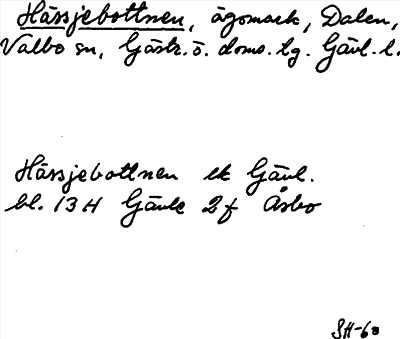 Hässjebottnen, ägomark, Dalen,
Valbo sn, Gästr. ö. doms. tg. Gävl. l.
Hässjebottnen ek Gävl.
bl. 13 H Gävle 2 f Åsbo
SH-60